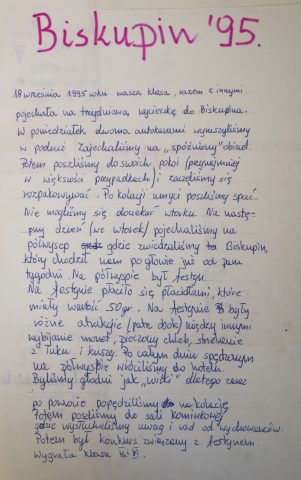 Biskupin '95.
18 września 1995 roku nasza klasa, razem z innymi
pojechała na trzydniową wycieczkę do Biskupina.
W poniedziałek dwoma autokarami wyruszyliśmy
w podróż. Zajechaliśmy na „spóźniony" obiad.
Potem poszliśmy do swoich pokoi (przynajmniej
w większości przypadkach) i zaczęliśmy się
rozpakowywać. Po kolacji umyci poszliśmy spać.
Nie mogliśmy się doczekać wtorku. Na nastę-
pny dzień (we wtorek) pojechaliśmy na
półwysep gdzie zwiedzaliśmy Biskupin,
który chodził nam po głowie już od paru
tygodni. Na półwyspie był festyn.
Na festynie płaciło się płacidłami, które
miały wartość 50 gr. Na festynie były
różne atrakcje (patrz obok) między innymi
wybijanie monet, pieczony chleb, strzelanie
z łuku i kuszy. Po całym dniu spędzonym
na półwyspie wróciliśmy do hotelu.
Byliśmy głodni jak „wilki" dlatego zaraz
po powrocie popędziliśmy na kolację.
Potem poszliśmy do sali kominkowej,
gdzie wysłuchaliśmy uwag i rad od wychowawców.
Potem był konkurs związany z festynem.
Wygrała klasa